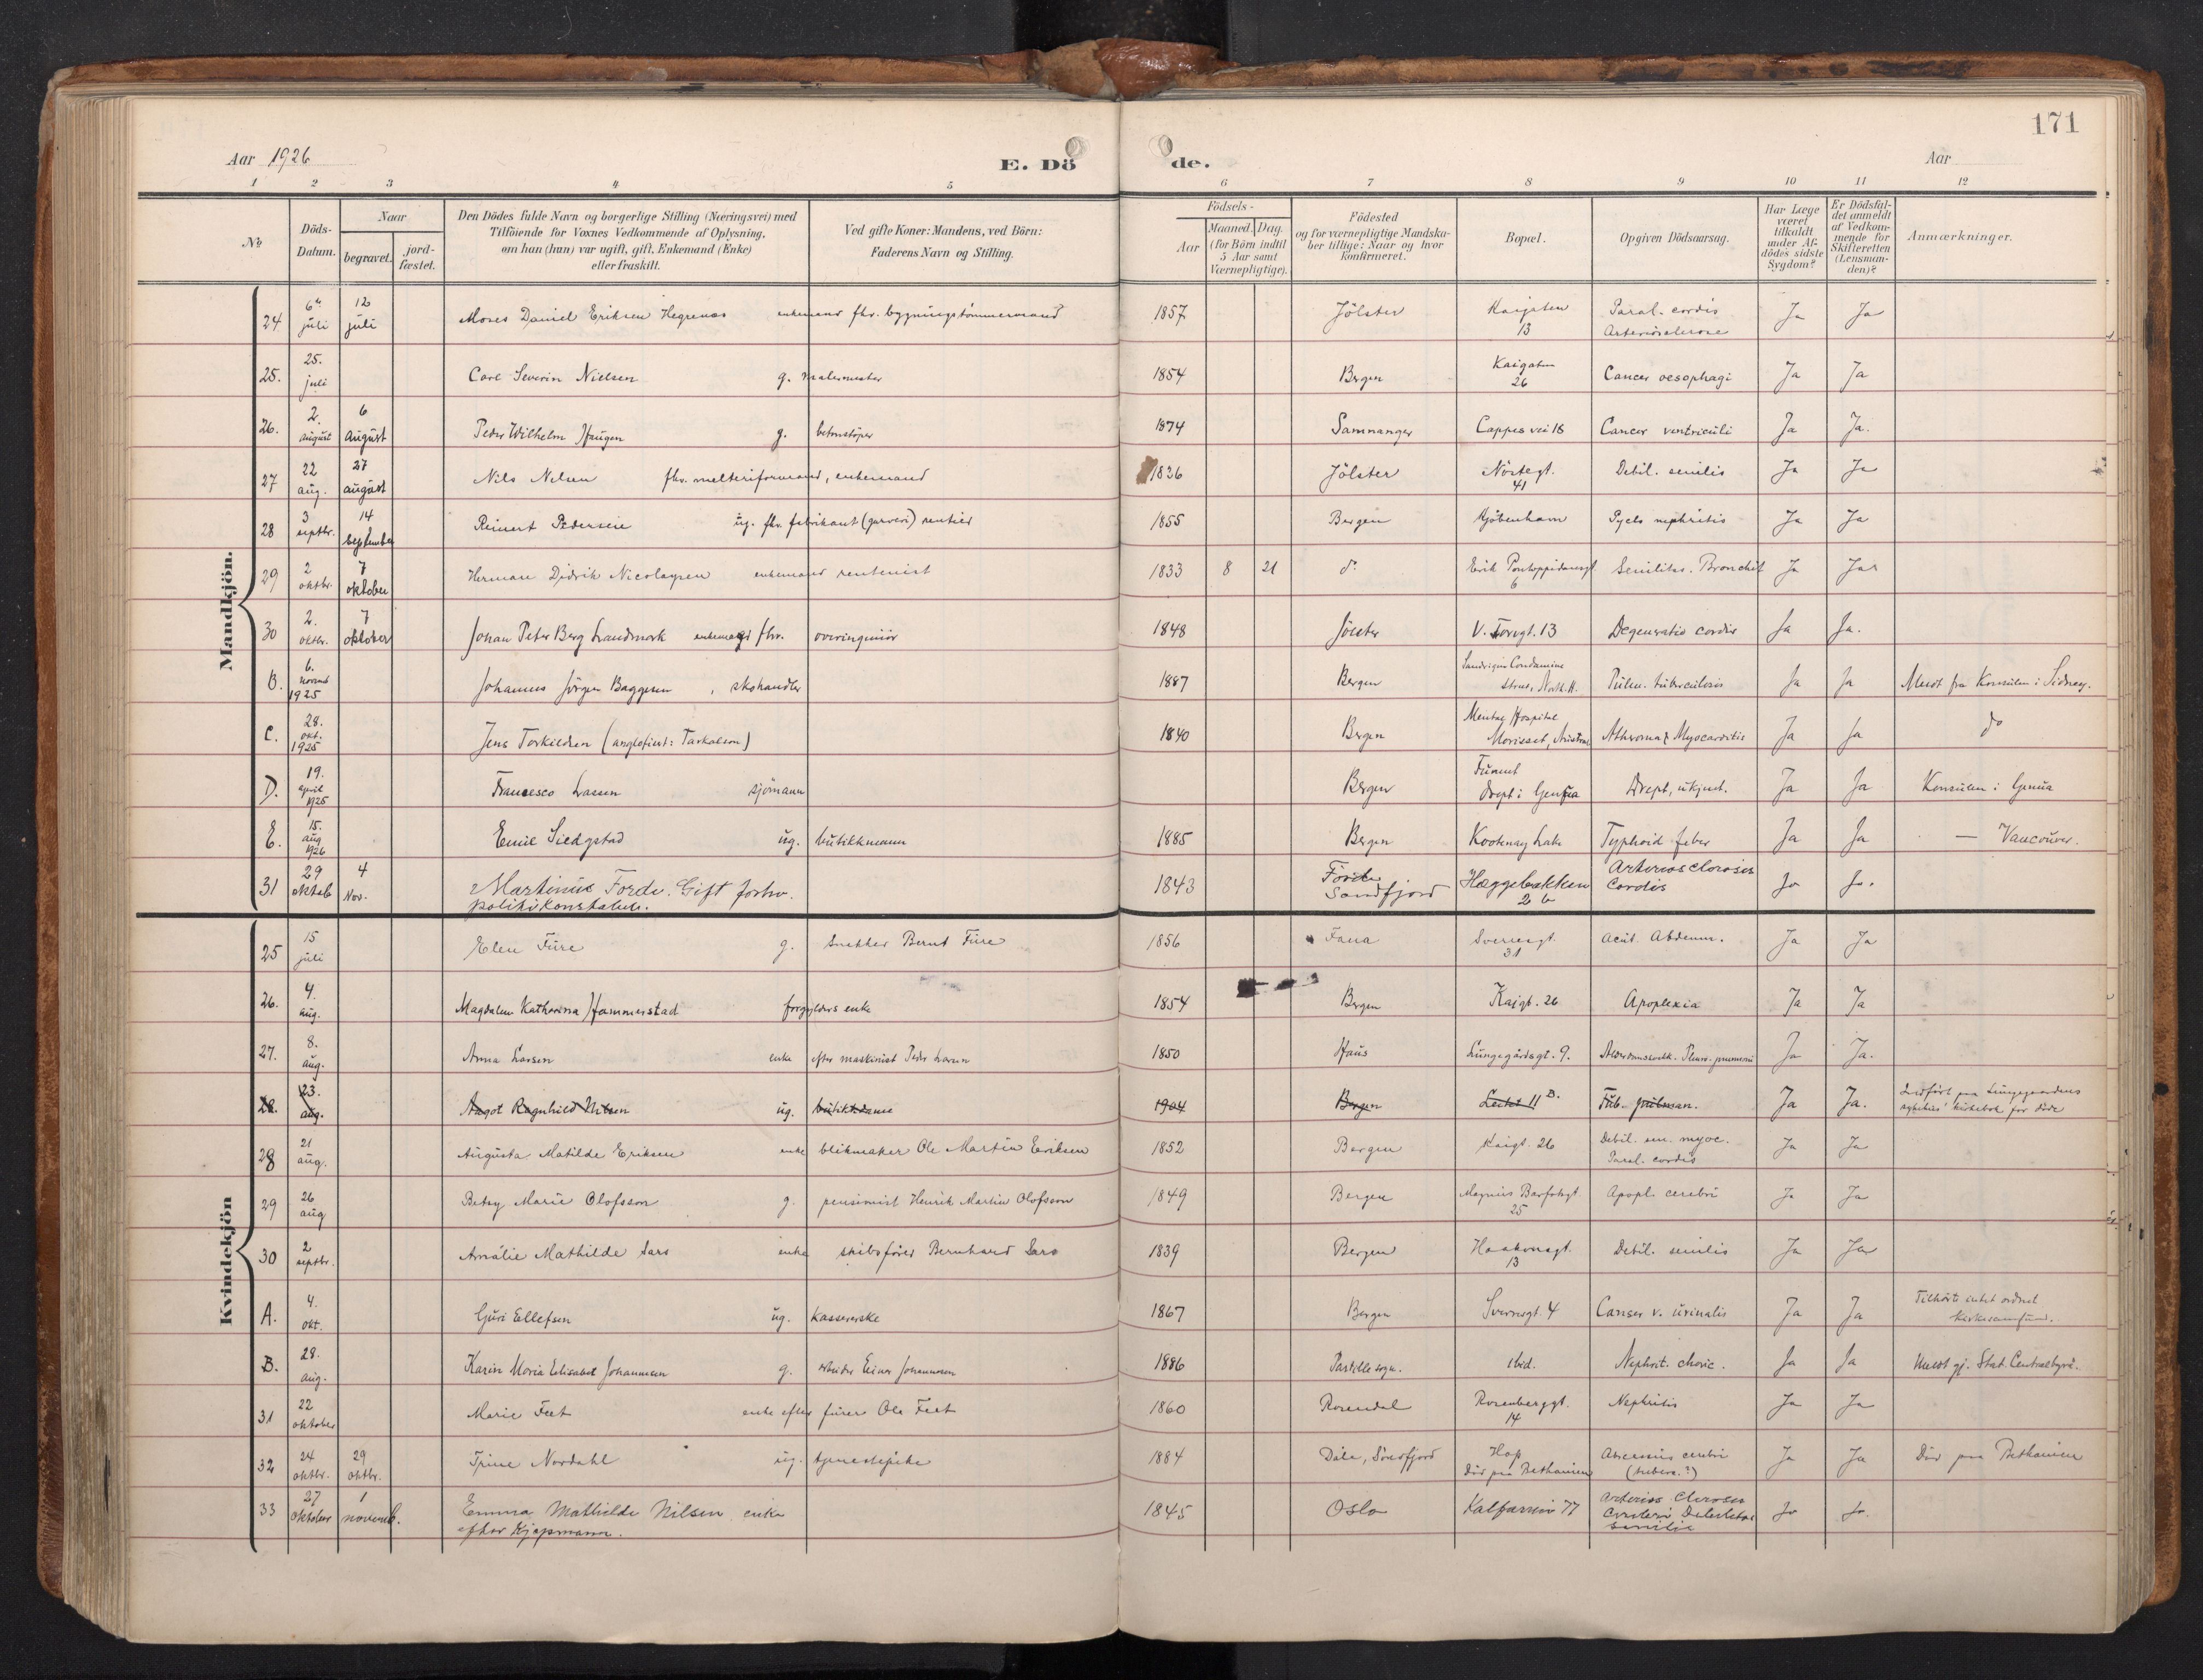 171
Aar 1926
E. Dö
de.
Aar
1 2 3 4 5 6 7 8 9 10 11 12
No
Döds-Datum.
Naar
begravet.
jord-fæstet.
Den Dödes fulde Navn og borgerlige Stilling (Næringsvei) med
Tilföiende for Voxnes Vedkommende af Oplysning,
om han (hun) var ugift, gift, Enkemand (Enke)
eller fraskilt.
Ved gifte Koner: Mandens, ved Börn:
Faderens Navn og Stilling.
Födsels-
Aar
Maaned. Dag.
(for Börn indtil
5 Aar samt
Værnepligtige).
Födested
og for værnepligtige Mandska-
ber tillige: Naar og hvor
konfirmeret.
Bopæl.
Opgiven Dödsaarsag.
Har Læge
været
tilkaldt
under Af-
dödes sidste
Sygdom?
Er Dödsfal-
det anmeldt
af Vedkom-
mende for
Skifteretten
(Lensman-
den)?
Anmærkninger.
Mandkjön.
24 6te juli 12 juli Moses Daniel Eriksen Hegrenæs enkemand fhv. bygningstömmermand 1857 Jölster Kaigaten 13 Paral. cordis Arteriosclerose Ja Ja
25. 25. juli Carl Severin Nielsen g. malermester 1854 Bergen Kaigaten 26 Cancer oesophagi Ja Ja
26. 2. august 6 August Peder Wilhelm Haugen g. betonstöper 1874 Samnanger Cappes vei 18 Cancer ventriculi Ja Ja.
27 22 aug. 27 august Nils Nelsen fhv. melteriformand, enkemand 1836 Jölster Nöstegt. 41 Debil. senilis Ja Ja
28 3 septbr. 14 September Reinert Pedersen ug. fhv. fabrikant (garveri) rentier 1855 Bergen Kjöbenhavn Pyelo nephritis Ja Ja
29 2 oktbr. 7 oktober Herman Didrik Nicolaysen enkemand rentenist 1833 8 21 do Erik Pontoppidansgt. 6 Senilitas. Bronchit Ja Ja
30 2. oktbr. 7 oktober Johan Peter Berg Landmark enkemand fhv. overingeniör 1848 Jölster V. Torvgt. 13 Degeneratio cordis Ja Ja.
B. 6. novemb 1925 Johannes Jörgen Baggesen, skohandler 1887 Bergen Condamine Pulm. tuberculosis Ja Ja Meldt fra Konsulen i Sidney.
C. 28. okt. 1925 Jens Torkildsen (anglofisert: Tarkalson) 1840 Bergen Mental Hospital Morisset, Atheroma & Myocarditis Ja Ja do
D. 19. april 1925 Francesco Lassen sjömann Bergen Funnet drept i Genua Drept, ukjent. Ja Ja Konsulen i Genua
E. 15. aug 1926 Emil Siedgstad ug. butikkmann 1885 Bergen Kootenay Lake Typhoid feber Ja Ja — Vancouver.
31 29 oktob 4 Nov. Martinus Forde. Gift forhv.
politikonstabel. 1843 Förde Sondfjord Hæggebakken 2 b Arteriosclerosis Cordis Ja Ja.
Kvindekjön
25 15 juli Elen Füre g. Snekker Bernt Füre 1856 Fana Sverresgt. 31 Acut. Abdomn. Ja Ja
26. 4. aug. Magdalene Katharina Hammerstad forgylders enke 1854 Bergen Kaigt. 26 Apoplexia Ja Ja
27. 8. aug. Anna Larsen enke efter maskinist Peder Larsen 1850 Haus Lungegårdsgt. 9. Ja Ja.
28. 23. aug. Aagot Ragnhild Nilsen ug. butikkdame 1904 Bergen 11 B. Tub. pulmon. Ja Ja. Indfört paa Lungegaardens sykehus' kirkebok for döde
28 21 aug. Augusta Matilde Eriksen enke blikmaker Ole Martin Eriksen 1852 Bergen Kaigt. 26 Debil. sen. myoc. Paral. cordis Ja Ja
29 26 aug Betsy Marie Olofsson g. pensionist Henrik Martin Olofsson 1849 Bergen Magnus Barfotsgt 25 Apopl. cerebri Ja Ja
30 2 septbr. Amalie Mathilde Sars enke skibsförer Bernhard Sars 1839 Bergen Haakonsgt. 13 Debil. senilis Ja Ja
A. 4. okt. Guri Ellefsen ug. Kassererske 1867 Bergen Sverresgt. 4 Cancer v. urinalis Ja Ja Tilhörte intet ordnet kirkesamfund.
B. 28. aug. Karin Maria Elisabet Johannesen g. arbeider Einar Johannesen 1886 ibid. Nephrit. chronic. Ja Ja Meldt gj. Stat. Centralbyrå.
31 22 oktober Marie Feet enke efter furer Ole Feet 1860 Rosendal Rosenberggt. 14 Nephritis Ja Ja
32 24 oktbr. 29 oktbr. Trine Nordahl ug. tjenestepike 1884 Dale, Söndfjord Hop Död paa Bethanien Abscessus cerebri (tubers.?) Ja Ja Död paa Bethanien
33 27 oktober 1 novemb. Emma Mathilde Nilsen enke
efter Kjøpmann. 1845 Oslo Kalfarvei 77 Arterios clerosis cerebri Debilitas senilis Ja Ja.